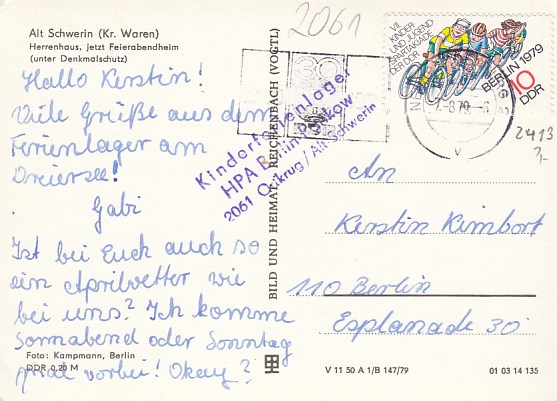 Alt Schwerin (Kr. Waren)
Herrenhaus, jetzt Feierabendheim
(unter Denkmalschutz)
Hallo Kerstin!
Viele Grüße aus dem
Ferienlager am
Dreiersee!
Gabi
Ist bei Euch auch so
ein Aprilwetter wie
bei uns? Ich komme
Sonnabend oder Sonntag
mal vorbei! Okay?
Foto: Kampmann, Berlin
DDR 0,20 M
BILD UND HEIMAT, REICHENBACH (VOGTL)
2061
Kinderferienlager
HPA Berlin-Pankow
2061 / Alt Schwerin
30
-8.79.-6
v
VII.
KINDER
UND JUGEND
SPARTAKIADE
DER DDR
BERLIN 1979
10
DDR
2413
An
Kerstin Kimbort
110 Berlin
Esplanade 30
V 11 50 A 1/B 147/79
01 03 14 135